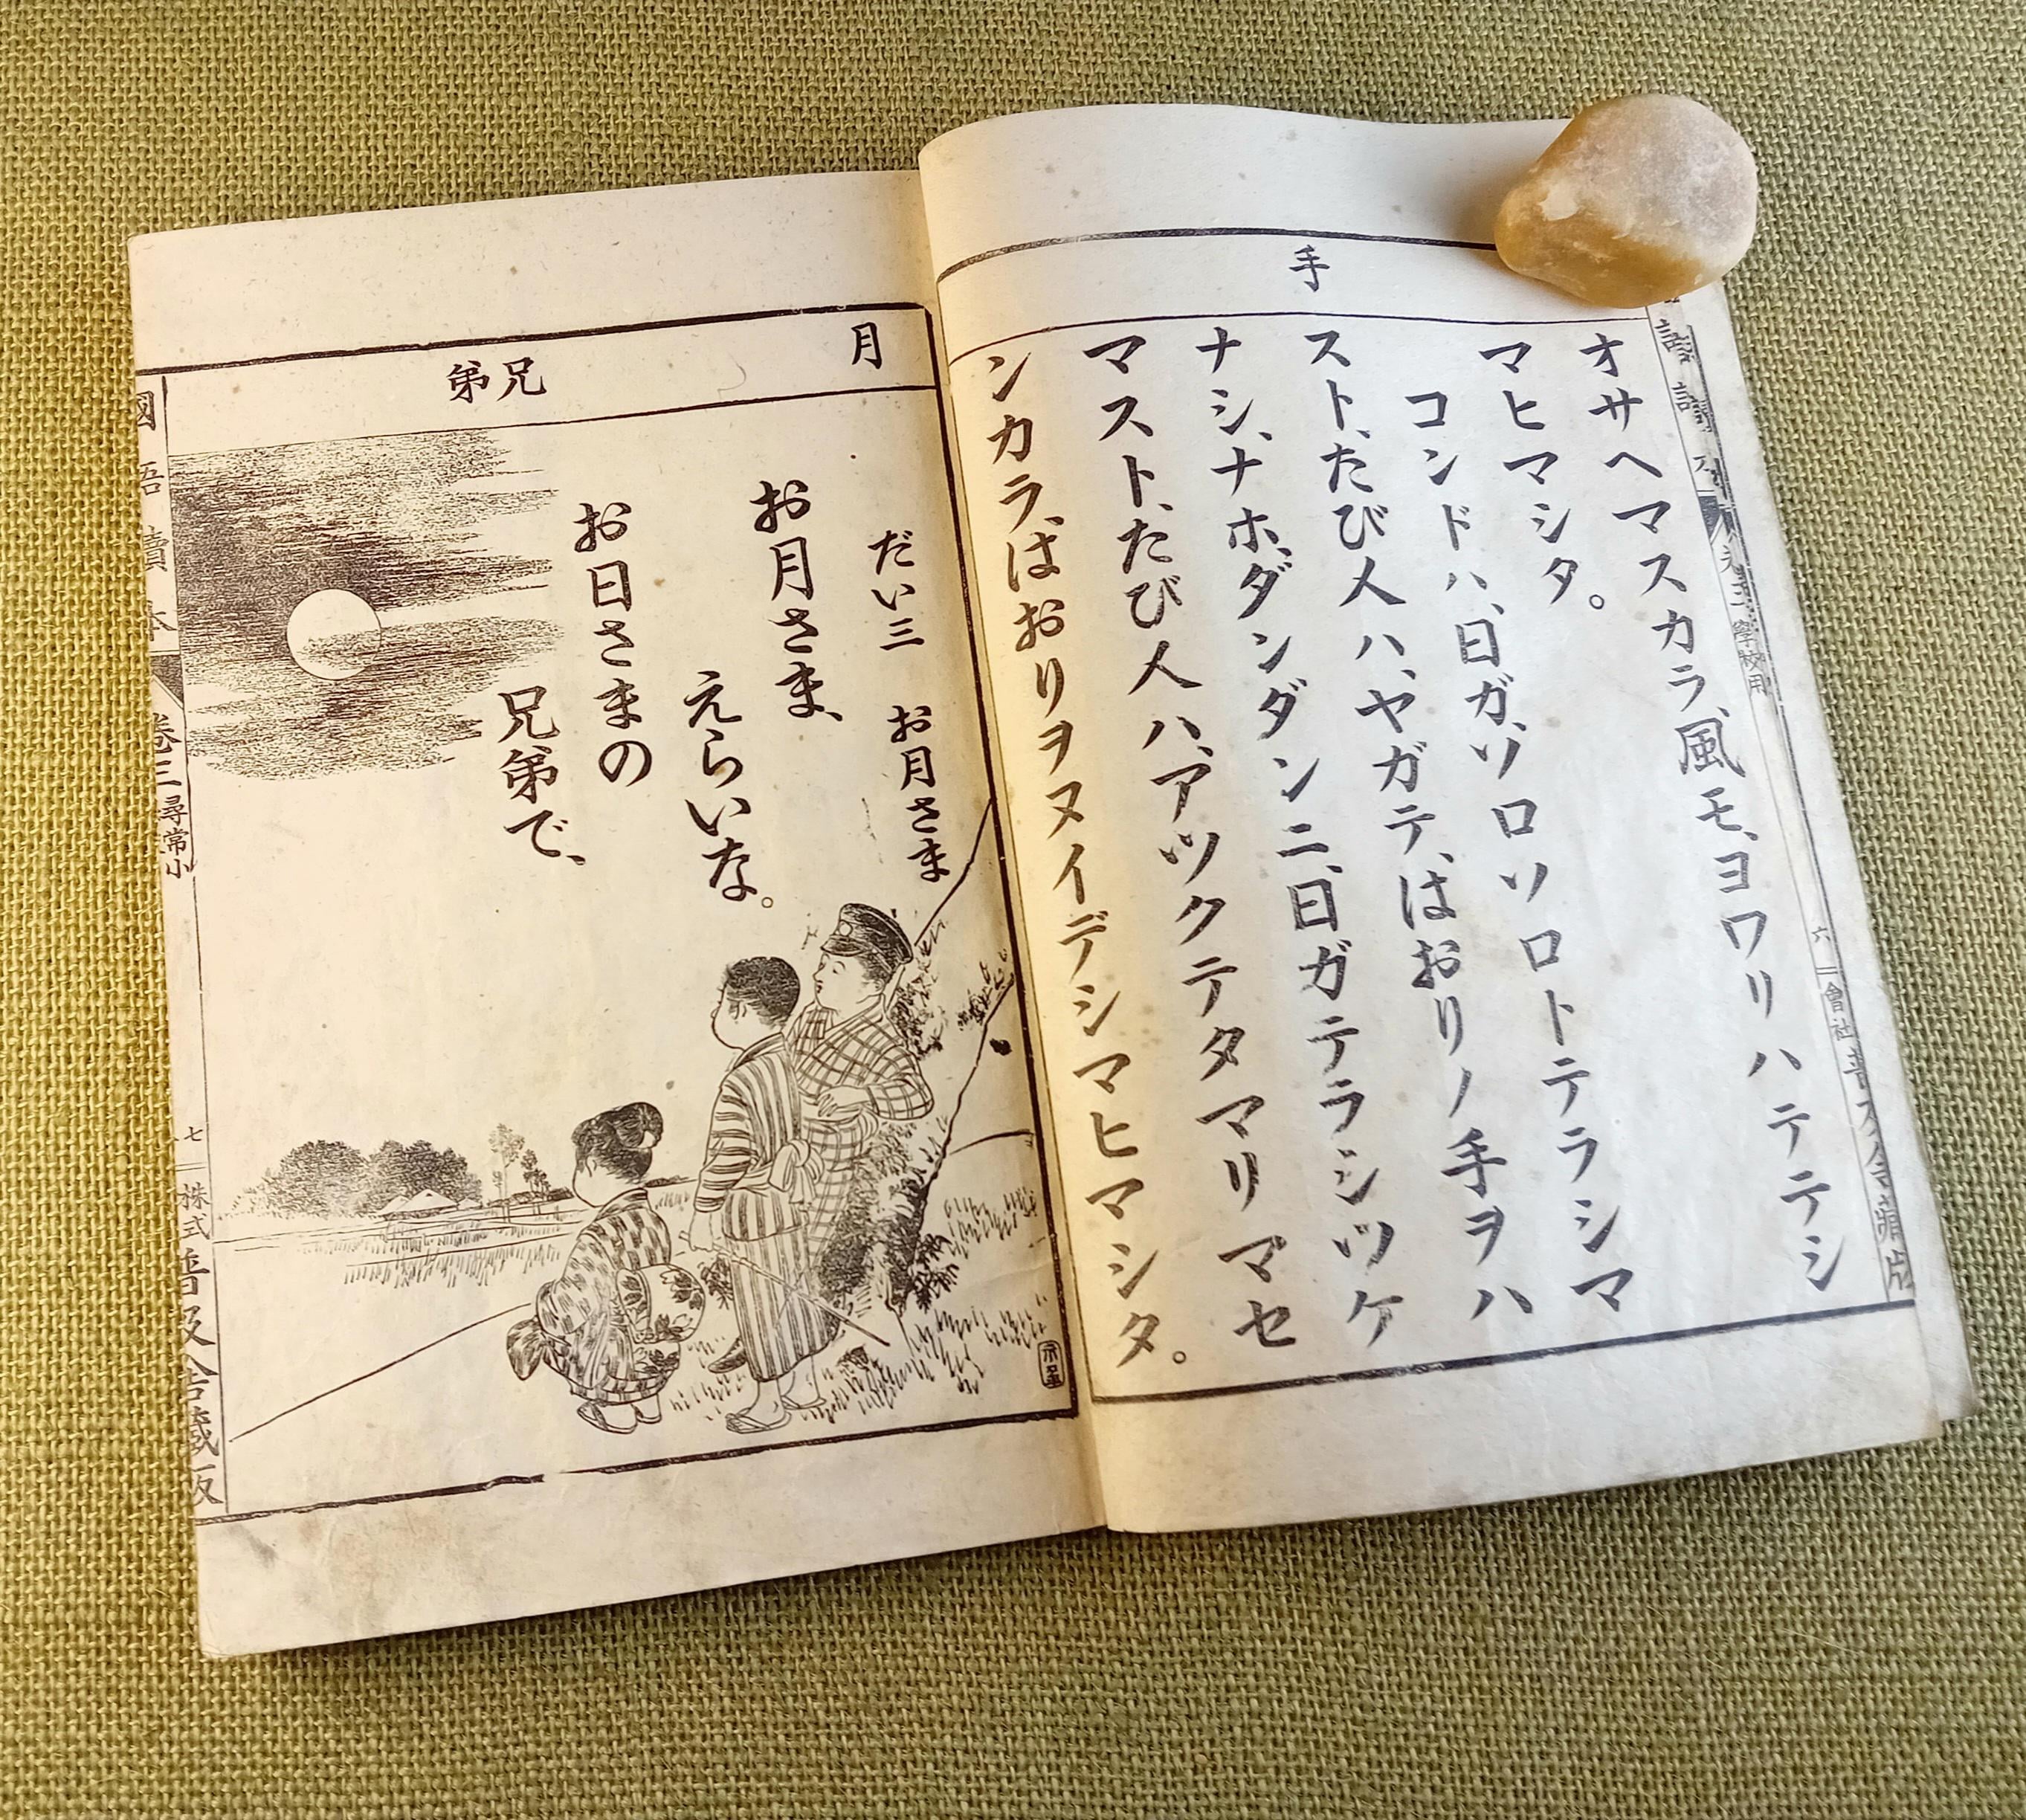 手
オサヘマスカラ、風モ、ヨワリハテテシ
マヒマシタ。
コンドハ、日ガ、ソロソロトテラシマ
スト、たび人ハ、ヤガテ、はおりノ手ヲハ
ナシ、ナホ、ダンダンニ、日ガテラシツケ
マスト、たび人ハ、アツクテタマリマセ
ンカラ、はおりヲヌイデシマヒマシタ。
學校用
六
會社
月
兄弟
だい三 お月さま
お月さま、
えらいな。
お日さまの
兄弟で、
國語讀本 卷三 尋常小
七
株式 普及舍藏版